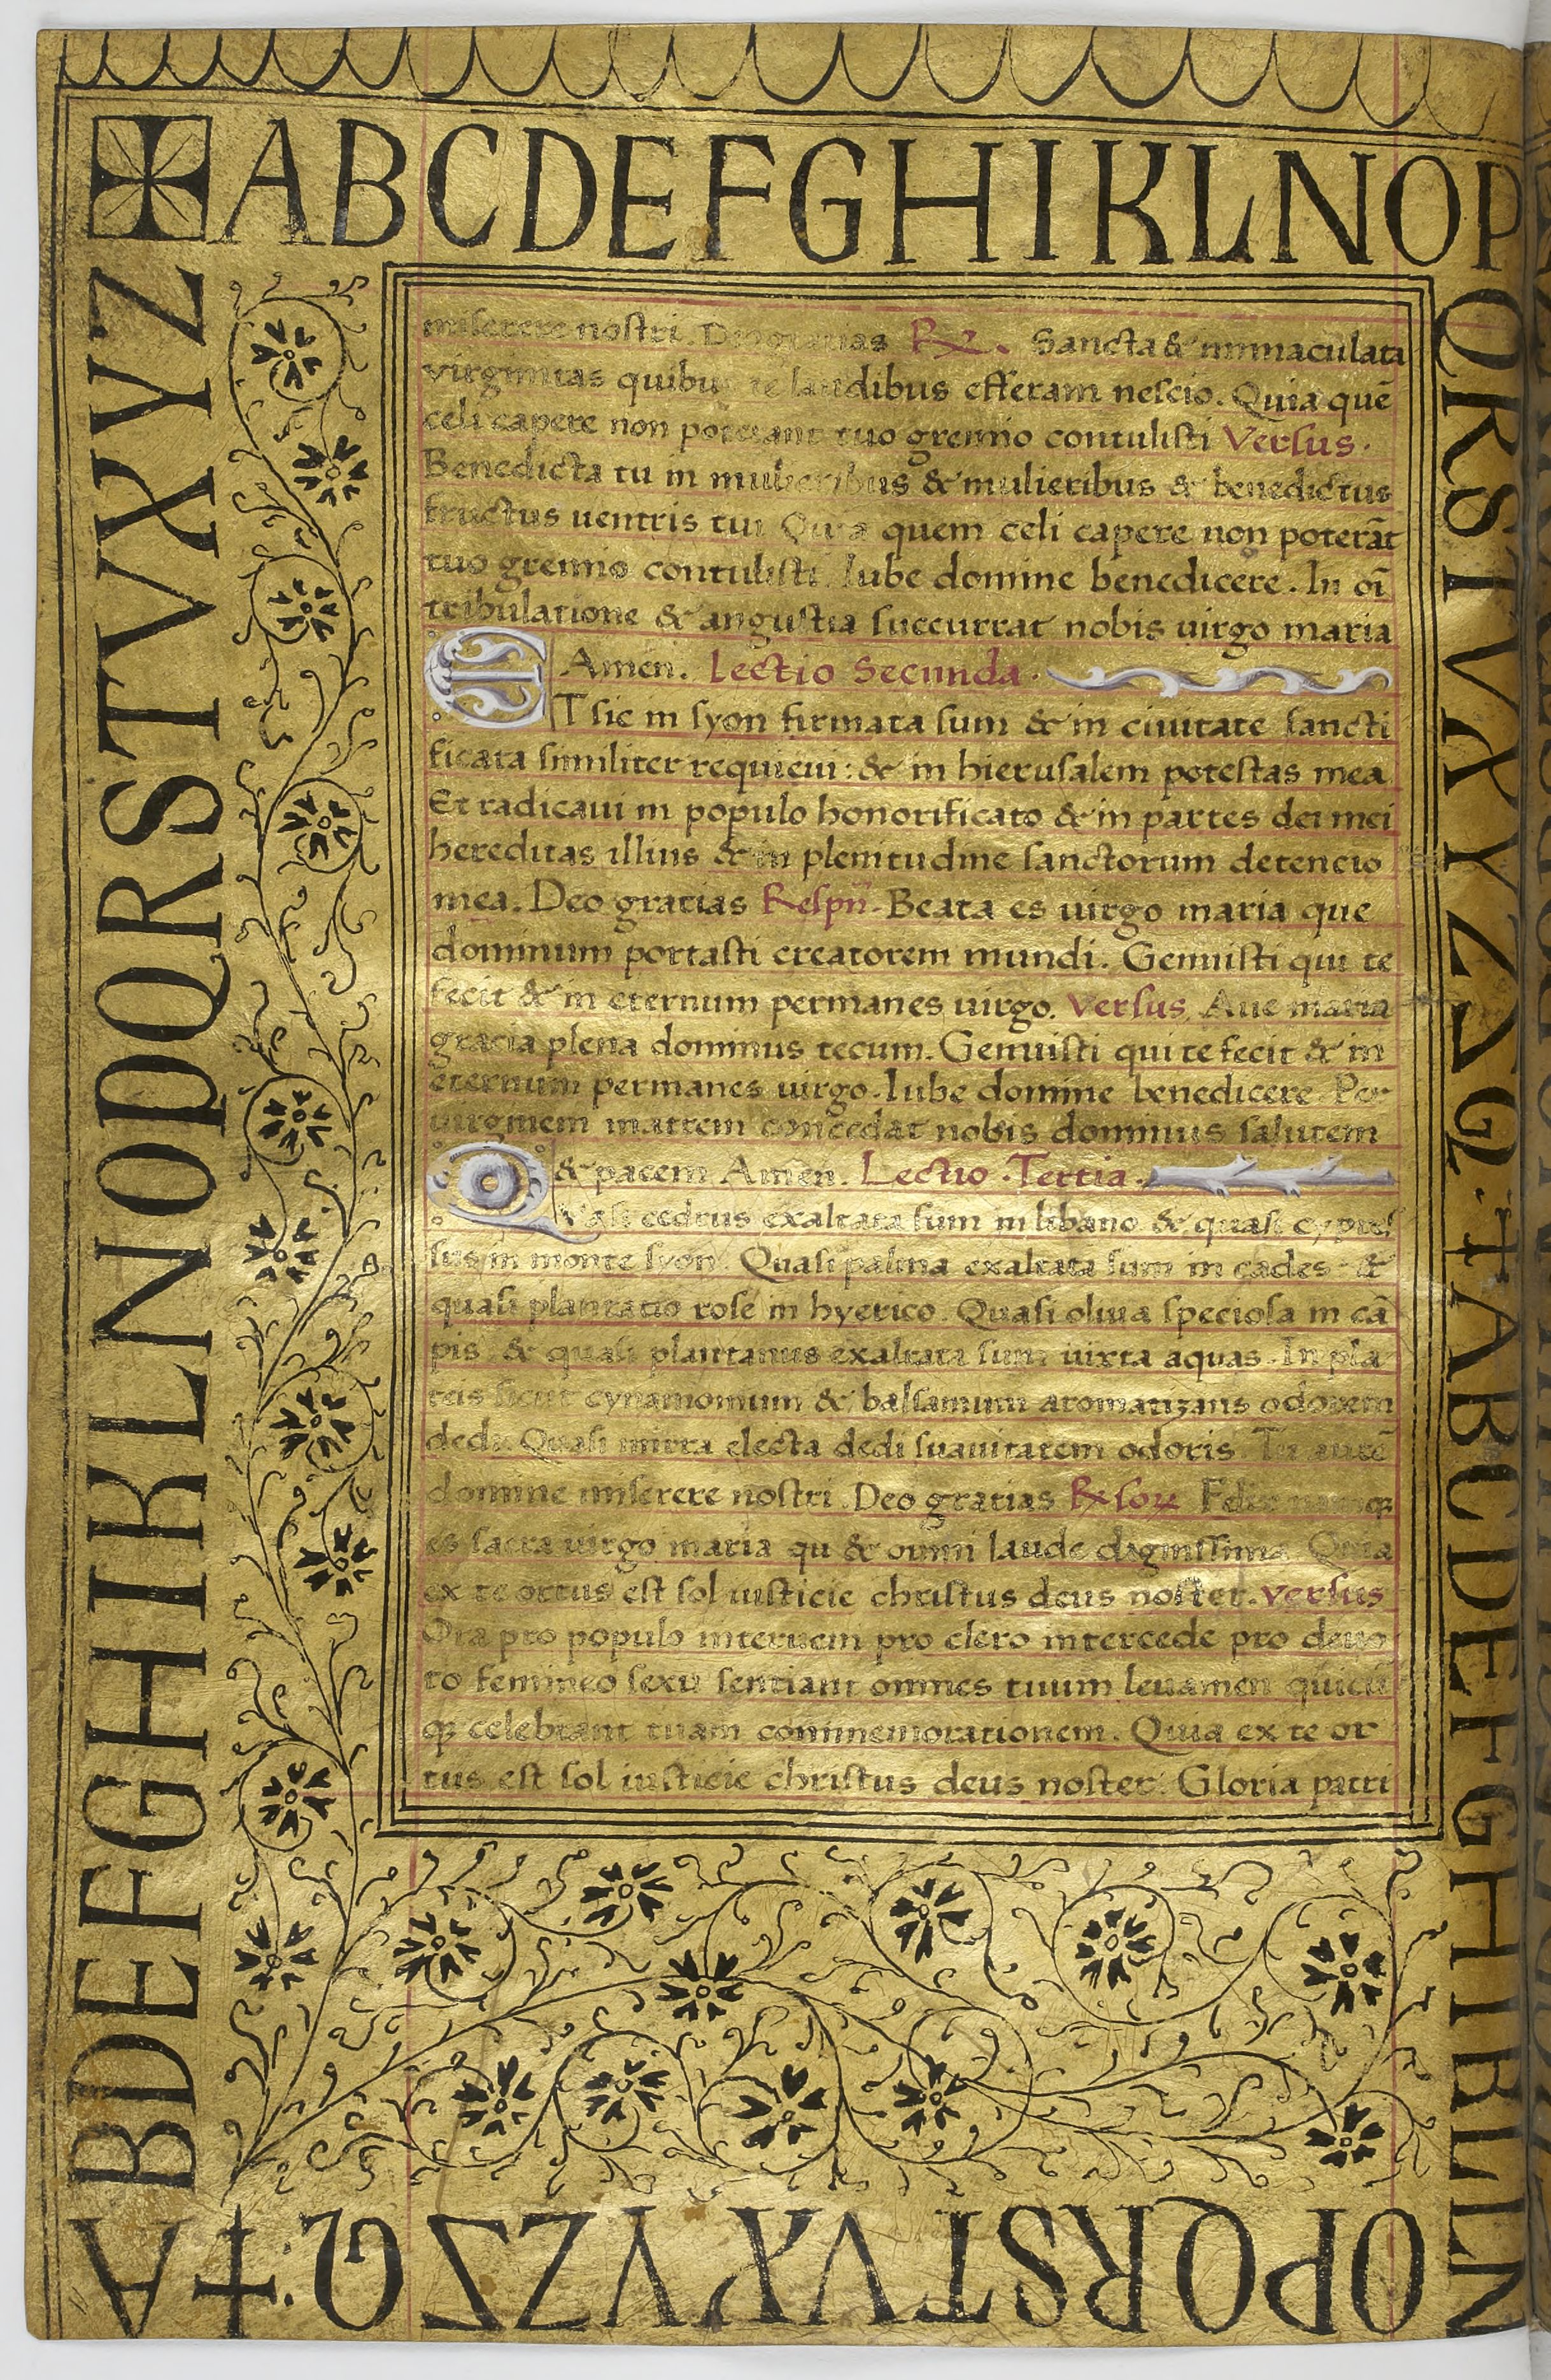 ABCDEFGHIKLNOP
QRSTVXYZ
miserere nostri. Deo gratias Rx. Sancta & inmaculata
virginitas quibus te laudibus efferam nescio. Quia quē
celi capere non poterant tuo gremio contulisti Versus.
Benedicta tu in mulieribus & mulieribus & benedictus
fructus uentris tui Quia quem celi capere non poterāt
tuo gremio contulisti. Iube domine benedicere. In oī
tribulatione & angustia succurrat nobis uirgo maria
Amen. Lectio Secunda.
ET sic in syon firmata sum & in ciuitate sancti
ficata similiter requieui: & in hierusalem potestas mea
Et radicaui in populo honorificato & in partes dei mei
hereditas illius & in plenitudine sanctorum detencio
mea. Deo gratias Respn̄. Beata es uirgo maria que
dominum portasti creatorem mundi. Genuisti qui te
fecit & in eternum permanes uirgo. Versus. Aue maria
gracia plena dominus tecum. Genuisti qui te fecit & in
eternum permanes uirgo. Iube domine benedicere. Per
uirginem matrem concedat nobis dominus salutem
& pacem Amen. Lectio. Tertia.
QVasi cedrus exaltata sum in libano & quasi cypres
sus in monte syon. Quasi palma exaltata sum in cades &
quasi plantatio rose in hyerico. Quasi oliua speciosa in cā
pis. & quasi plantanus exaltata sum iuxta aquas. In pla
teis sicut cynamomum & balsamum aromatizans odorem
dedi. Quasi mirra electa dedi suauitatem odoris Tu autē
domine miserere nostri. Deo gratias Felix namqꝫ
es sacra uirgo maria qu & omni laude dignissima Quia
ex te ortus est sol iusticie christus deus noster. versus
Ora pro populo interuem pro clero intercede pro deuo
to femineo sexu sentiant omnes tuum leuamen quicū
qꝫ celebrant tuam commemorationem. Quia ex te or
tus est sol iusticie christus deus noster. Gloria patri
ABCDEFGHIKLN
OPQRSTVXYZ
ABDEFGHIKLNOPQRSTVXYZ